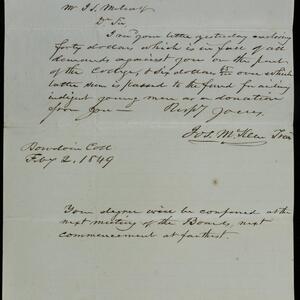 Mr I. S. Metcalf
Dr Sir
I recd your letter yesterday enclosing
forty dollars which is in full of all
demands against you on the part
of the College, & six dollars over which
latter sum is passed to the fund for aiding
indigent young men as a donation
from you — Respy Yours,
Jos. McKeen Trea
Bowdoin Coll
Feby 2, 1849
Your degree will be conferred at the
next meeting of the Boards, next
commencement at farthest.